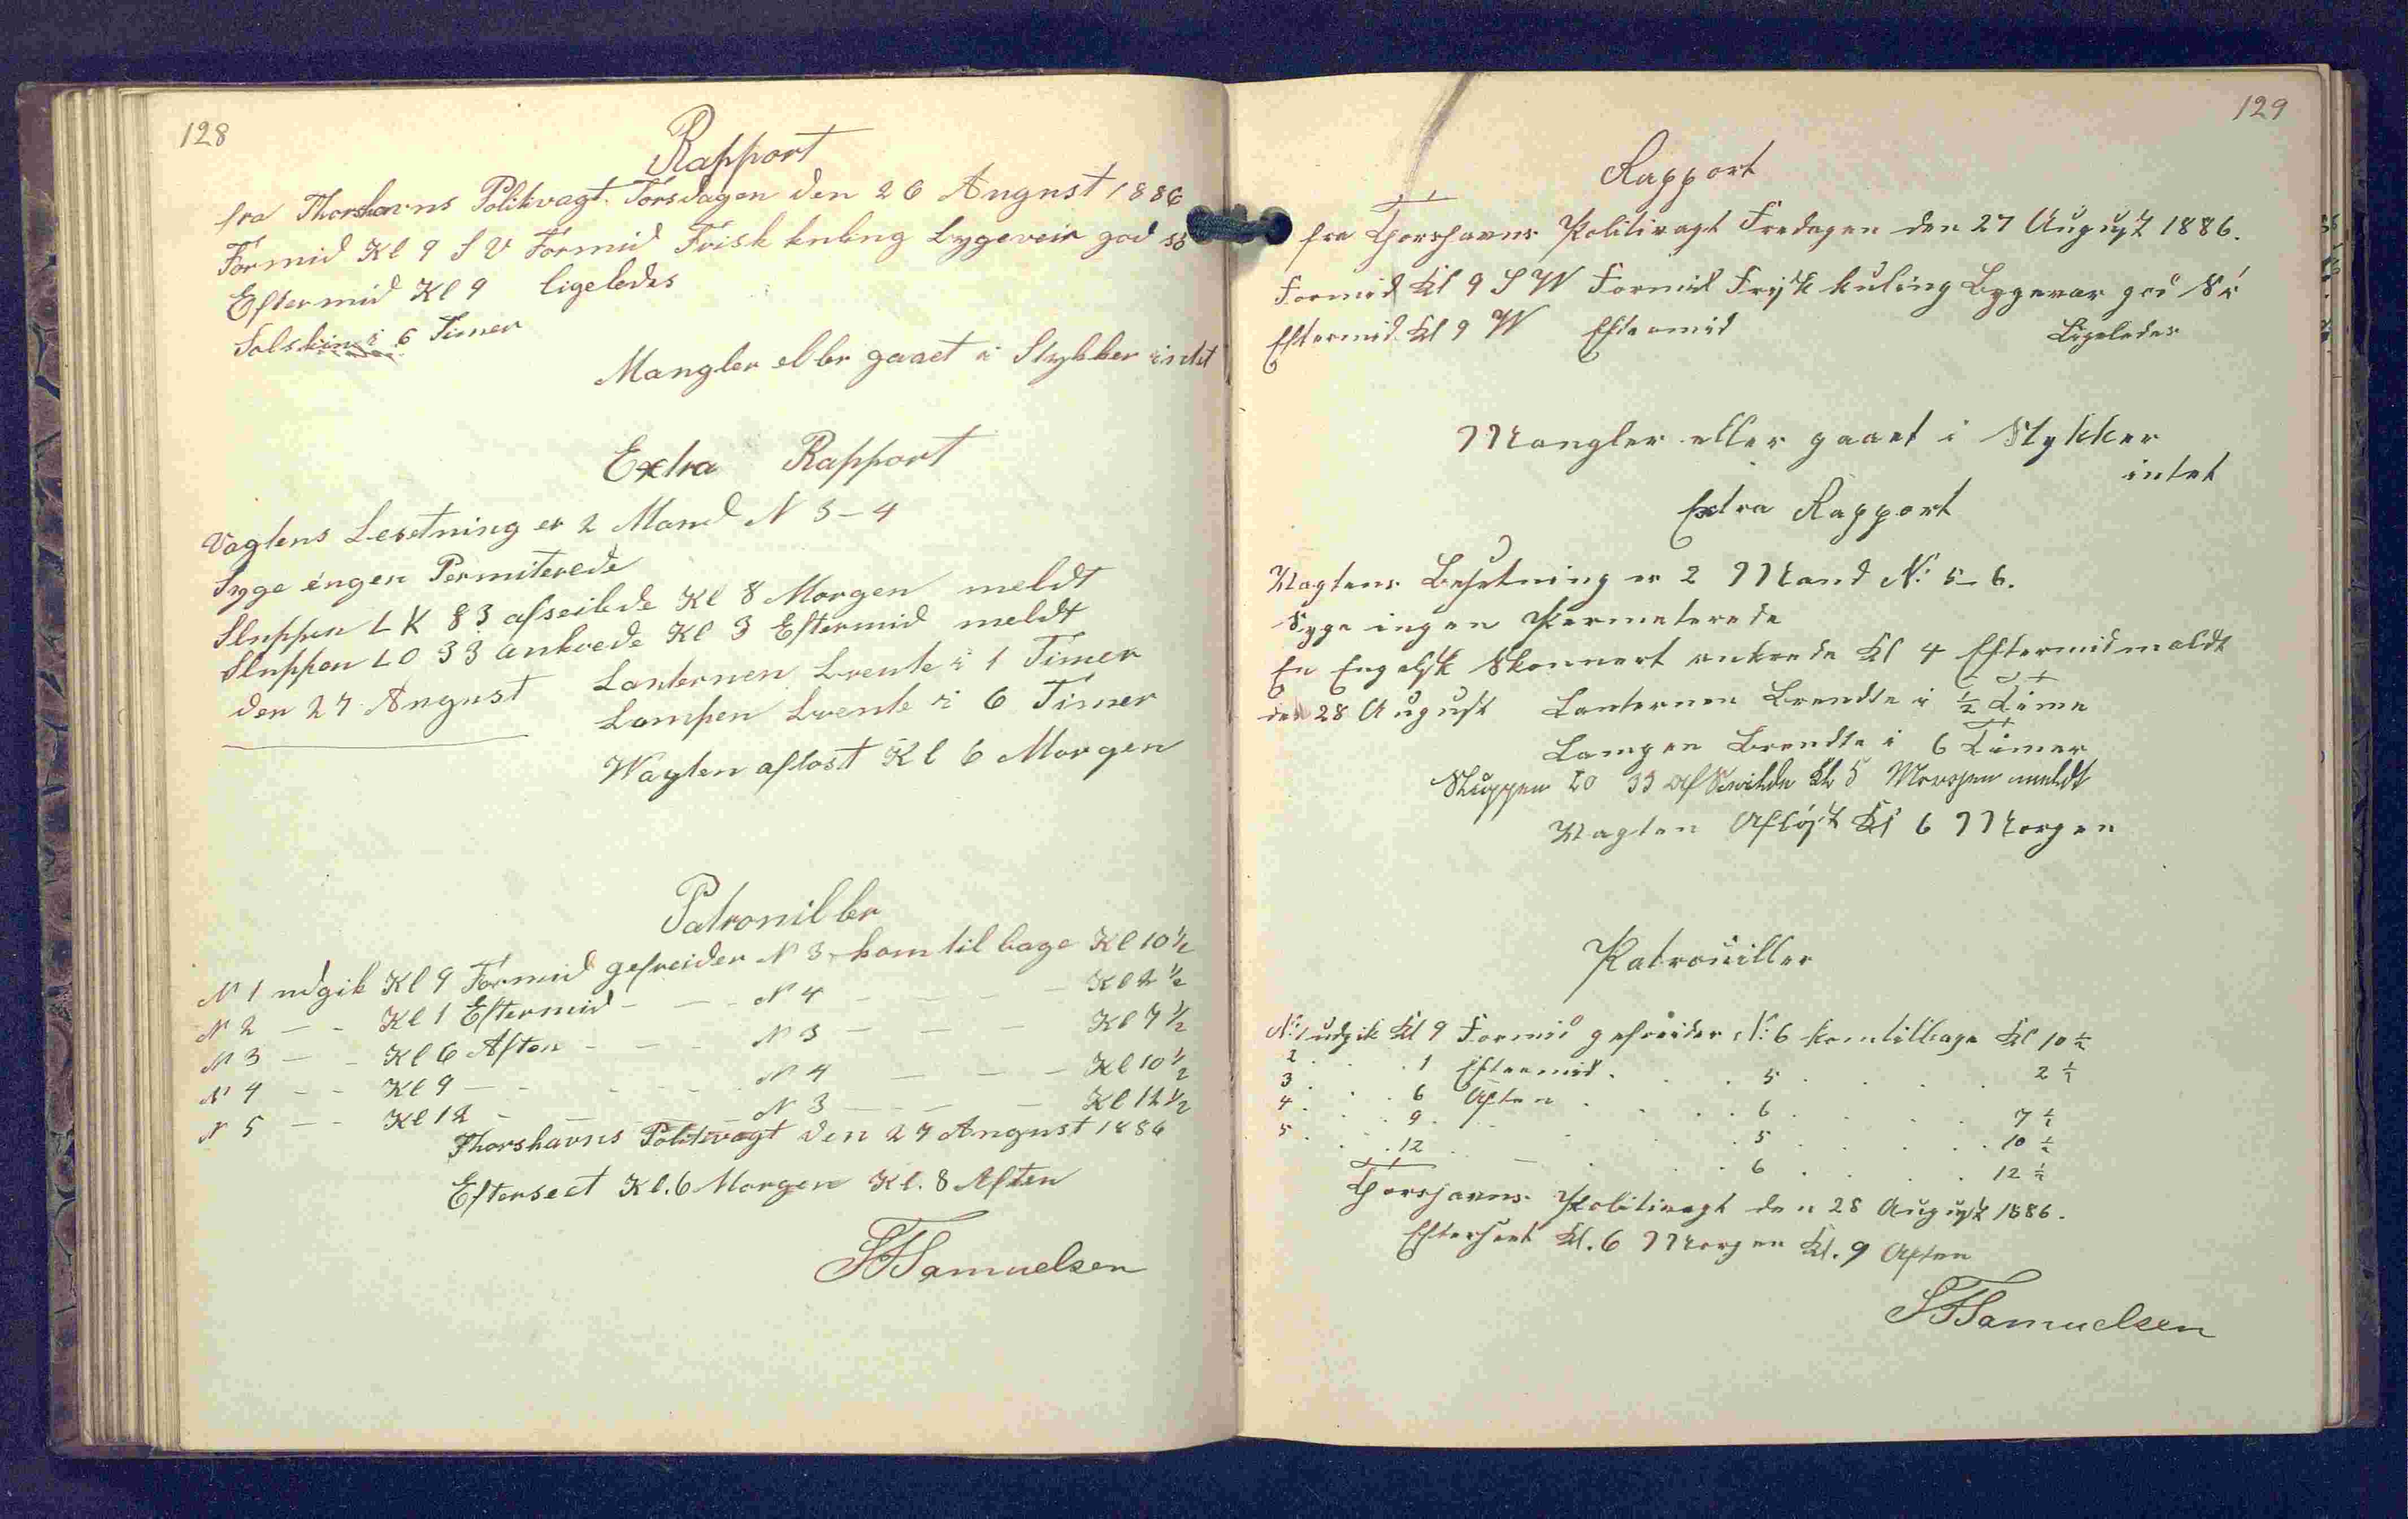 128
Rapport
fra Thorshavns Politivagt. Torsdagen den 26 August 1886
Formid Kl 9 S V Formid Frisk kuling Bygeveir god sö
Eftermid Kl 9 ligeledes
Solskin i 6 Timer
Mangler eller gaaet i Stykker intet
Extra Rapport
Vagtens Besetning er 2 Mand N 3-4
Syge ingen Permiterede
Sluppen LK 83 afseilede Kl 8 Morgen meldt
Sluppen LO 33 ankrede Kl 3 Eftermid meldt
den 27 August Lanternen brente i 1 Timer
Lampen brente i 6 Timer
Wagten aflost Kl 6 Morgen
Patrouiller
N 1 udgik Kl 9 Formid gefreider N 3 kom til bage Kl 10 1/2
N 2 — - Kl 1 Eftermid - — - N 4 — - - — Kl 2 1/2
N 3 — - Kl 6 Aften - - — N 3 — — — Kl 7 1/2
N 4 - - Kl 9 — - - - - N 4 — — — Kl 10 1/2
N 5 — - Kl 12 - — — — N 3 — — — Kl 12 1/2
Thorshavns Politivagt den 27 August 1886
Efterseet Kl. 6 Morgen Kl. 8 Aften
SFSamuelsen
129
Rapport
fra Thorshavns Politivagt Fredagen den 27 August 1886.
Formid Kl 9 S W Formid Frisk kuling Bygevar god Sö
Eftermid. Kl 9 W Eftermid Ligeledes
Mangler eller gaaet i Stykker
intet
Extra Rapport
Wagtens Besetning er 2 Mand N: 5-6.
Syge ingen Permeterede
En Engelsk Skonnert ankrede Kl 4 Eftermid meldt
den 28 August Lanternen brendte i 1/2 Time
Lampen brendte i 6 Timer
Sluppen LO 33 afSeilde Kl 5 Morgen meldt
Wagten Afløst Kl 6 Morgen
Patrouiller
N: 1 udgik Kl 9 Formid gefreider N: 6 kom tilbage Kl 10 1/2
2 . . . 1 Eftermid . . . 5 . . . . 2 1/2
3 . . . 6 Aften . . . 6 . . . . 7 1/2
4 . . . 9 . . . . 5 . . . . 10 1/2
5 . . . 12 . — . . 6 . . . . 12 1/2
Thorshavns Politivagt den 28 August 1886.
Efterseet Kl. 6 Morgen Kl. 9 Aften
SFSamuelsen